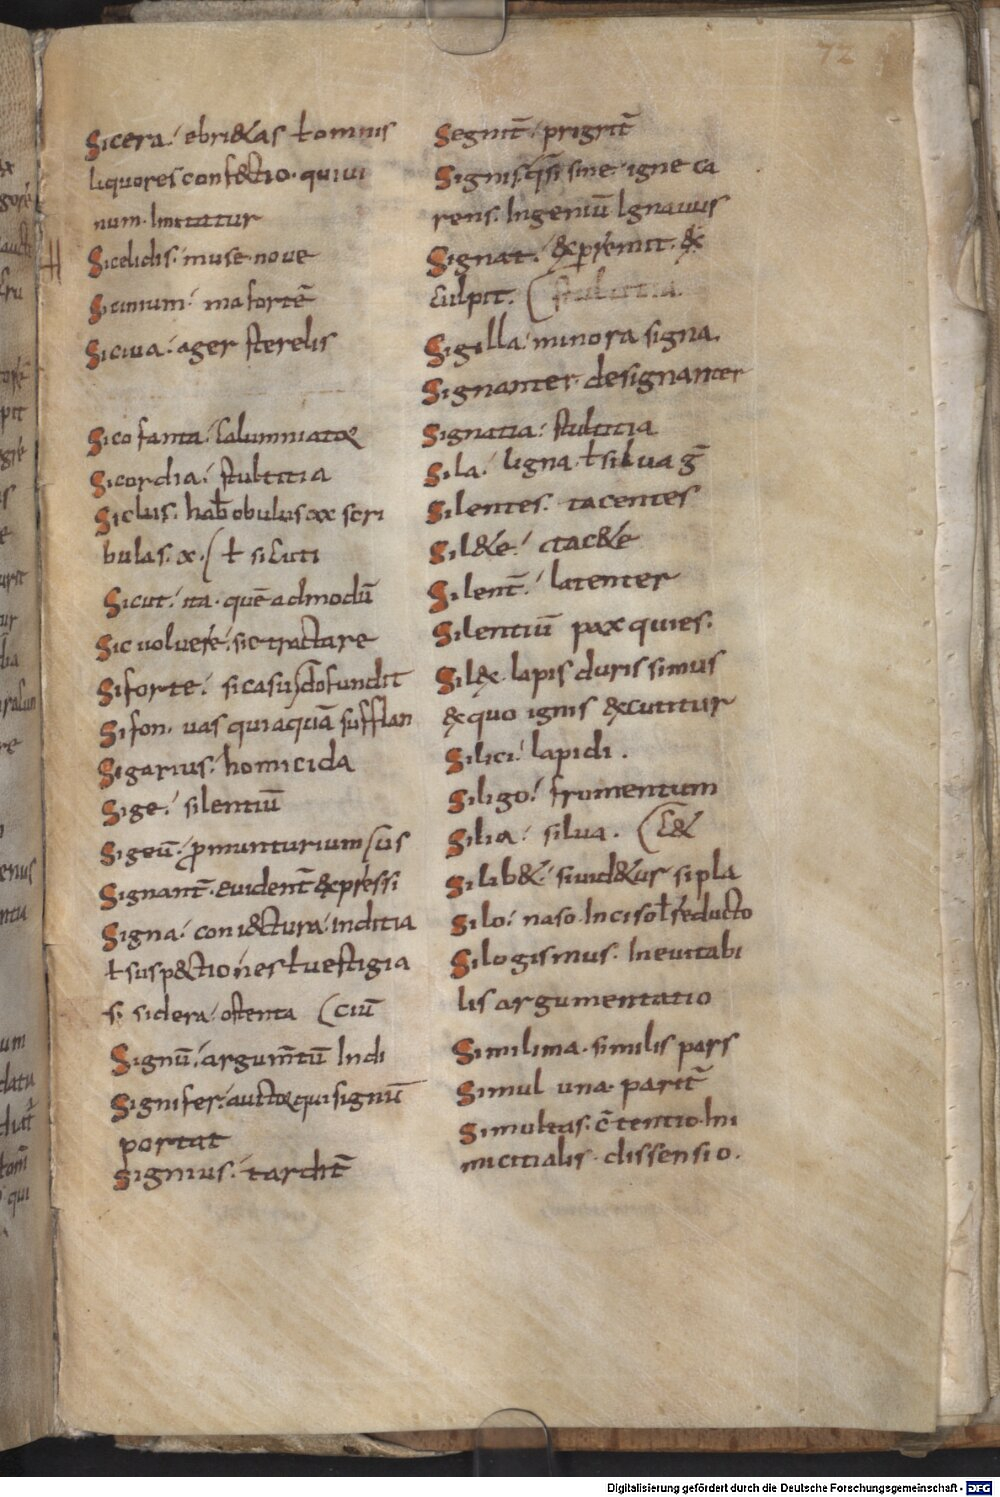 72
Sicera· ebri&as ł omnis
liquores conf&tio· qui ui
num· Imitatur
Sicelidis· muse noue
Sicinium· mafortē
Siciua· ager sterelis
Sicofanta· Calumniator
Sicordia· stultitia
Siclus· hab̄ obulus xx scri
bulas· x· ( ł siCuti
Sicut· ita· quē admodū
Sic uoluere· sic tractare
Siforte· si casu
Sifon· uas qui aquā sufflan
Sigarius· homicida
Sige· silentiū
Sigeū· ꝓmunturium
Signant̄· euident̄ &xpressi
Signa· coni&tura· inditia
ł susp&tiones ł uestigia
si sidera· ostenta (ciū
Signū· argum̄tū Indi
Signifer· auctor qui signū
portat
Signius· tardit̄
Segnit̄· prigrit̄
Signis· q̄si sine· igne ca
rens· Ingeniū Ignauus
Signat· &xp̄remit· &
Culpit· ( stultitia
Sigilla· minora signa·
Signanter· designanter
Signatia· stultitia
Sila· ligna· ł silua ḡ
Silentes· tacentes
Sil&e· & tac&e
Silent̄· latenter
Silentiū pax quies·
Sil&x· lapis durissimus
& quo ignis &xcutitur
Silici· lapidi ·
Siligo· fromentum
Silia· silua · (C&
Silib&· siuid&ur si pla
Silo· naso· Inciso ł seducto
Silogismus· Ineuitabi
lis argumentatio
Similima· similis pars
Simul una· parit̄
Simultas· c̄tentio· Ini
micitialis· dissensio·
Digitalisierung gefördert durch die Deutsche Forschungsgemeinschaft - DFG